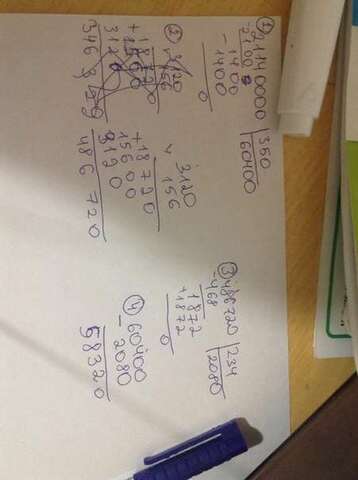 ① 21140000 | 350
-2100 | 60400
1400
-1400
0
② 3120
× 156
+18720
3120
156
+18720
15600
3120
486720
③ 486720 | 234
-468 | 2080
1872
+1872
0
④ 60400
- 2080
58320